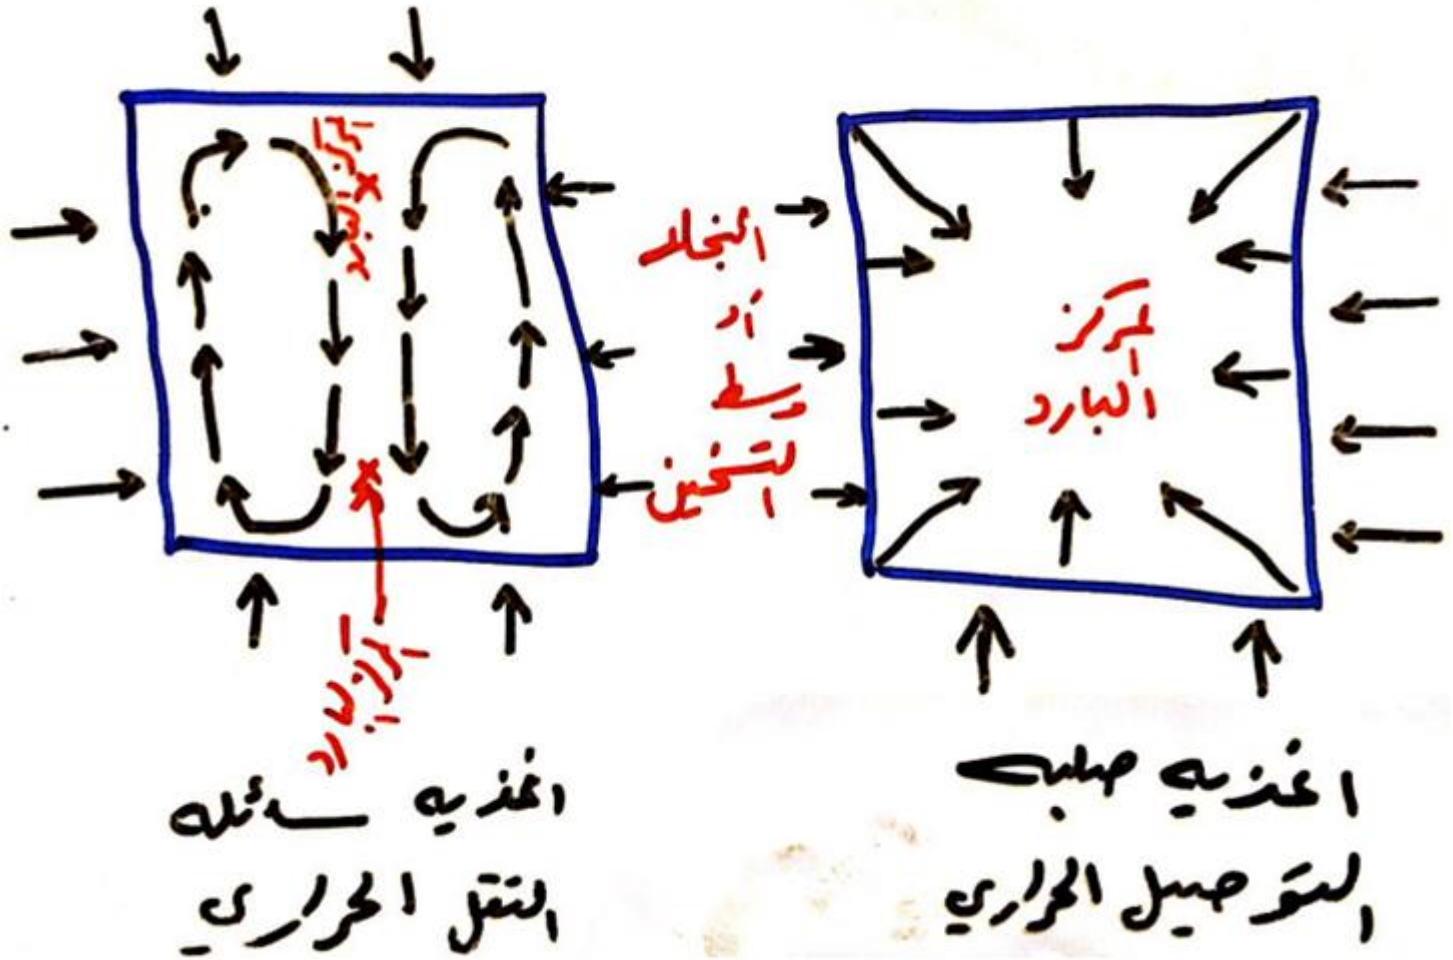 المركز البارد
البخار
أو
وسط
التسخين
المركز
البارد
المركز البارد
اغذيه صلبه
التوصيل الحراري
اغذيه سائله
النقل الحراري